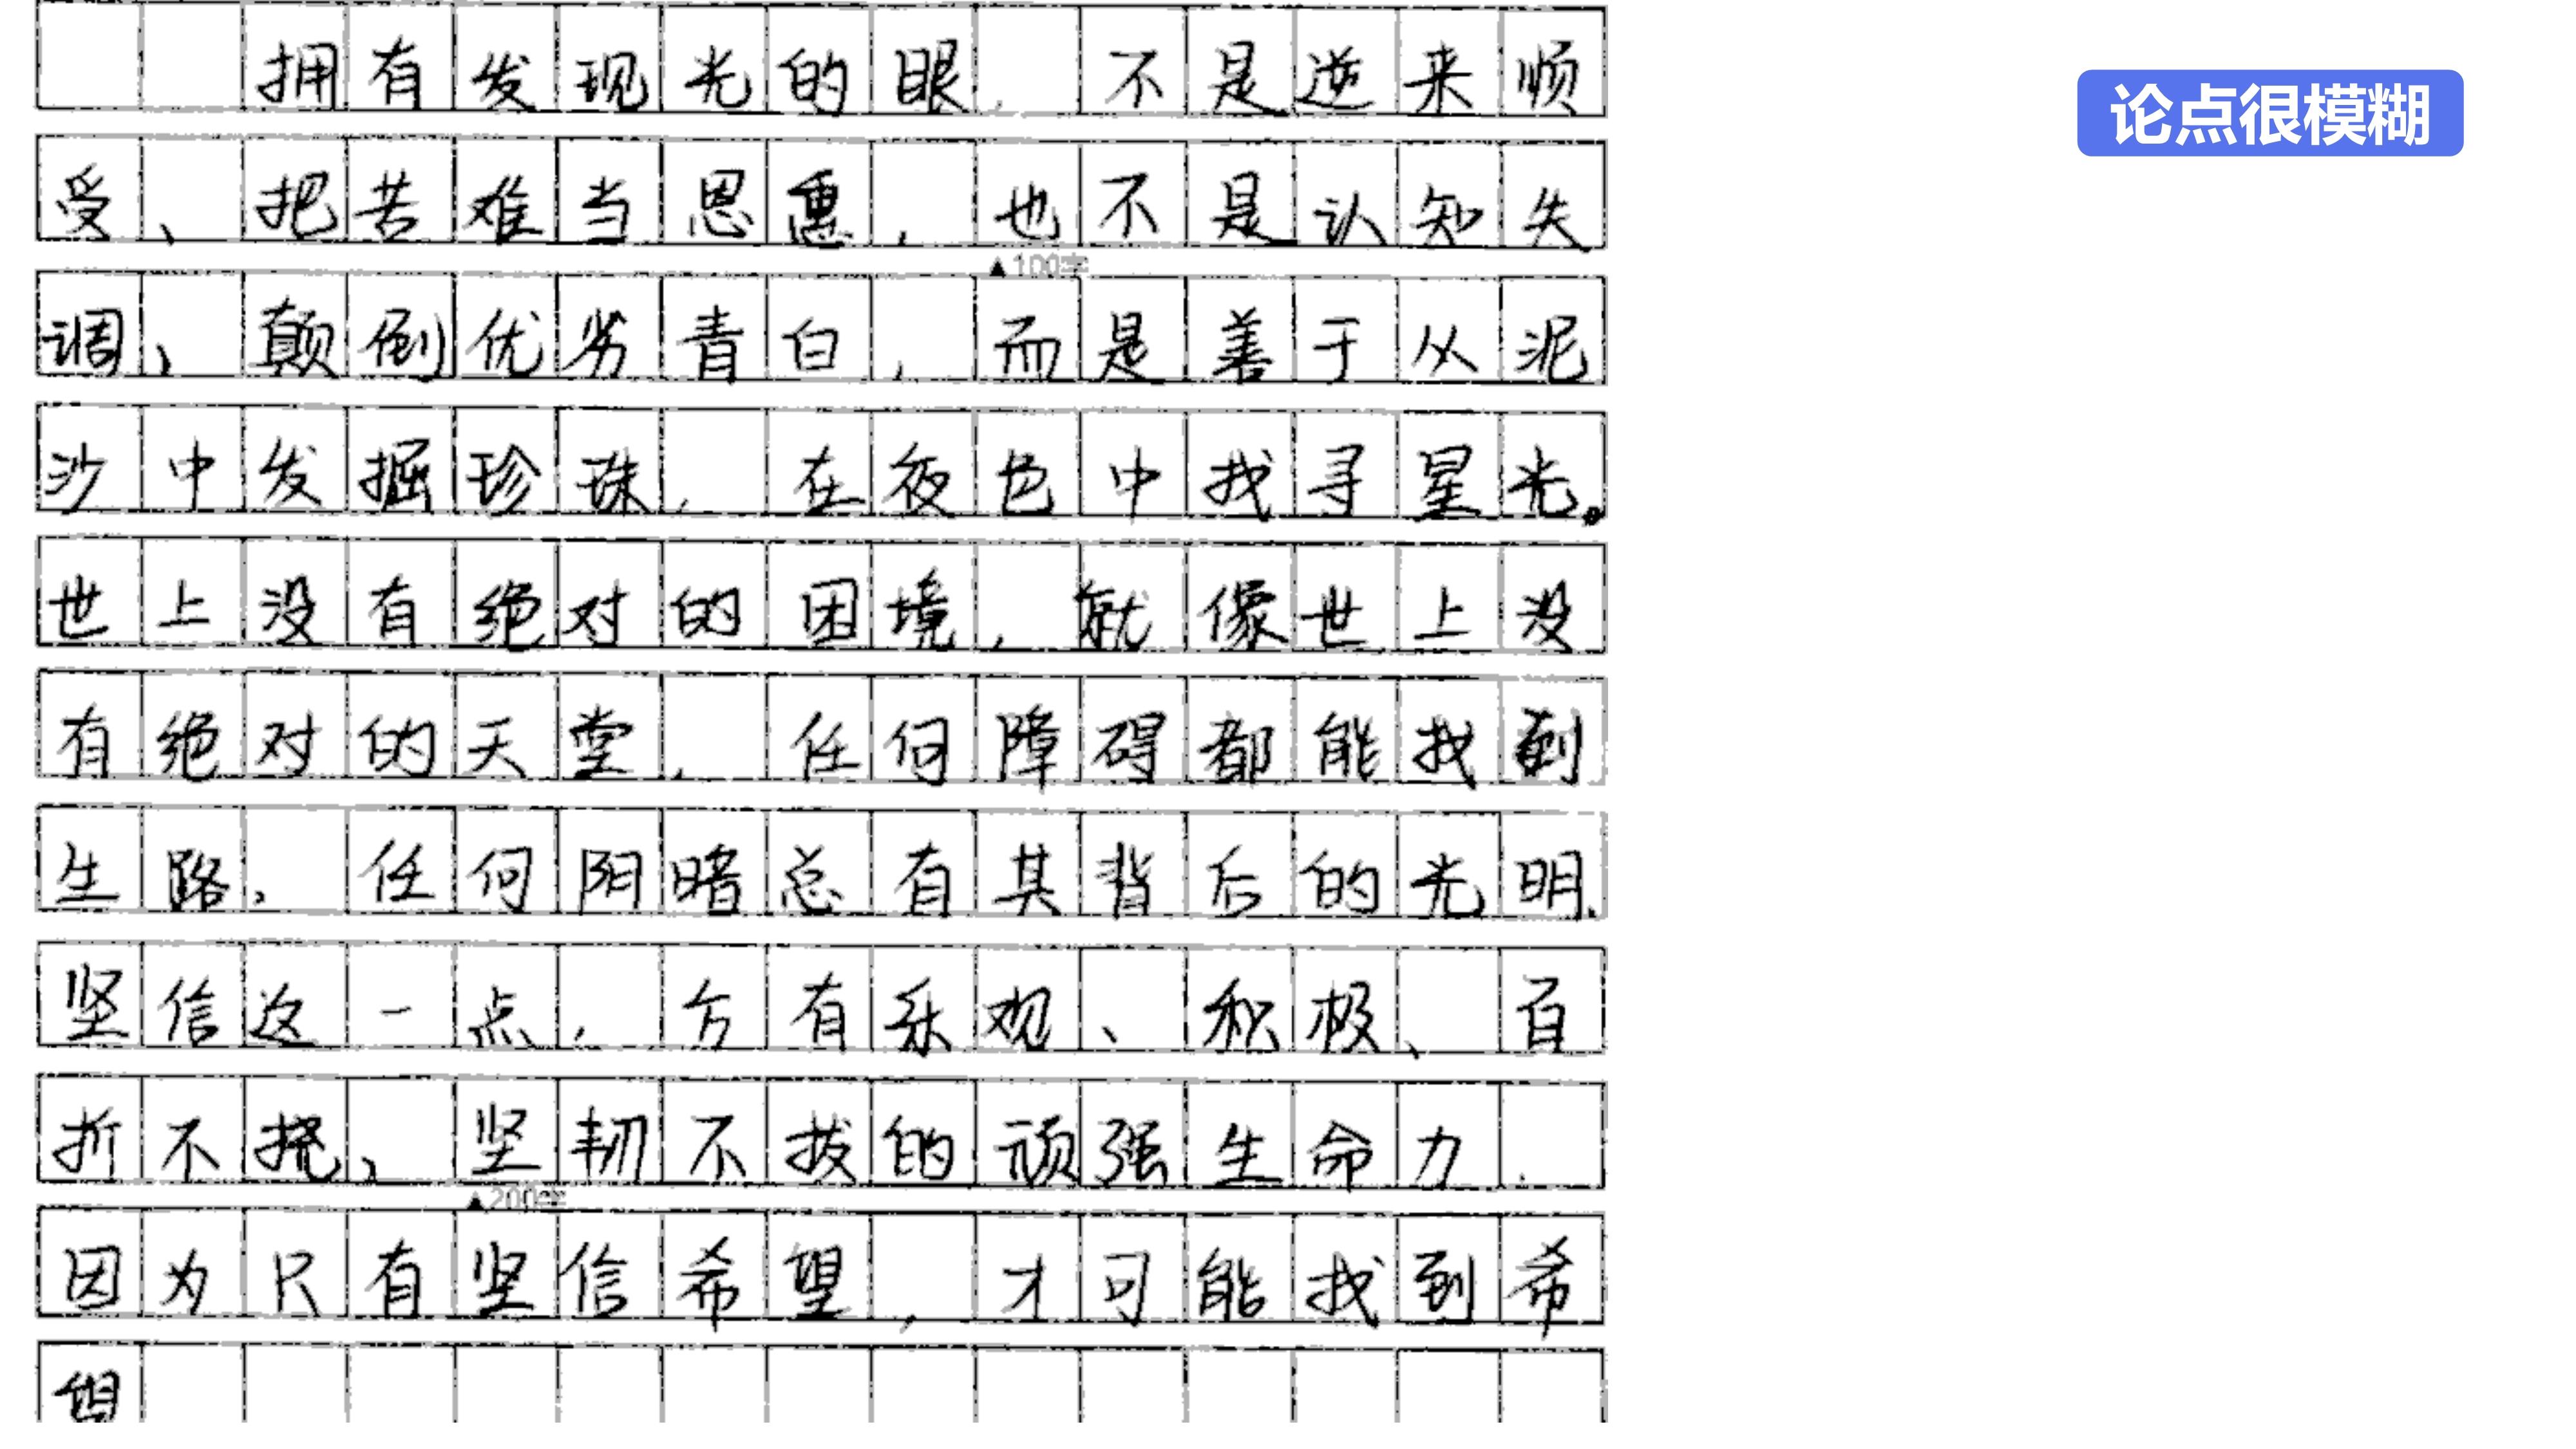 拥有发现光的眼，不是逆来顺
论点很模糊
受、把苦难当恩惠，也不是认知失
▲100字
调、颠倒优劣青白，而是善于从泥
沙中发掘珍珠，在夜色中找寻星光。
世上没有绝对的困境，就像世上没
有绝对的天堂，任何障碍都能找到
生路，任何阴暗总有其背后的光明.
坚信这一点，方有乐观、积极、百
折不挠、坚韧不拔的顽强生命力.
▲200字
因为只有坚信希望，才可能找到希
望